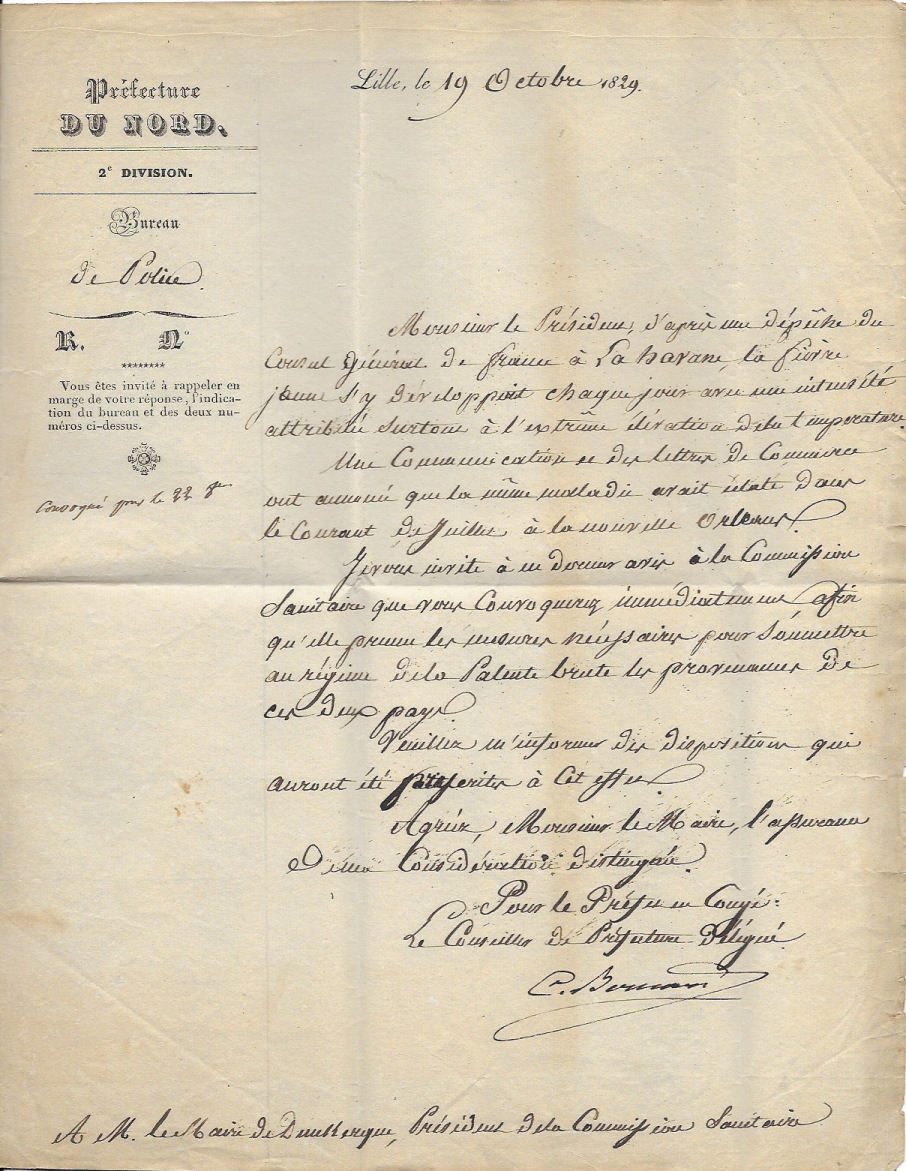 Préfecture
DU NORD.
2e DIVISION.
Bureau
de Police
R. No
Vous êtes invité à rappeler en
marge de votre réponse, l'indica-
tion du bureau et des deux nu-
méros ci-dessus.
Convoqué pour le 22 8bre
Lille, le 19 Octobre 1829.
Monsieur le Président, d'après une dépêche du
Consul Général de france à La havane, la fièvre
jaune s'y développoit chaque jour avec une intensité
attribuée surtout à l'extrême élévation de la température.
Une Communication et des lettres de Commerce
ont annoncé que la même maladie avait éclaté dans
le Courant de Juillet à la nouvelle Orléans.
Je vous invite à en donner avis à la Commission
Sanitaire que vous Convoquerez immédiatement afin
qu'elle prenne les mesures nécessaires pour Soumettre
au régime de la Patente brute les provenances de
ces deux pays.
Veuillez m'informer des dispositions qui
auront été prescrites à Cet effet.
Agréez, Monsieur le Maire, l'assurance
De ma Considération distinguée.
Pour le Préfet en Congé:
Le Conseiller de Préfecture Délégué
A M. le Maire de Dunkerque, Président de la Commission Sanitaire